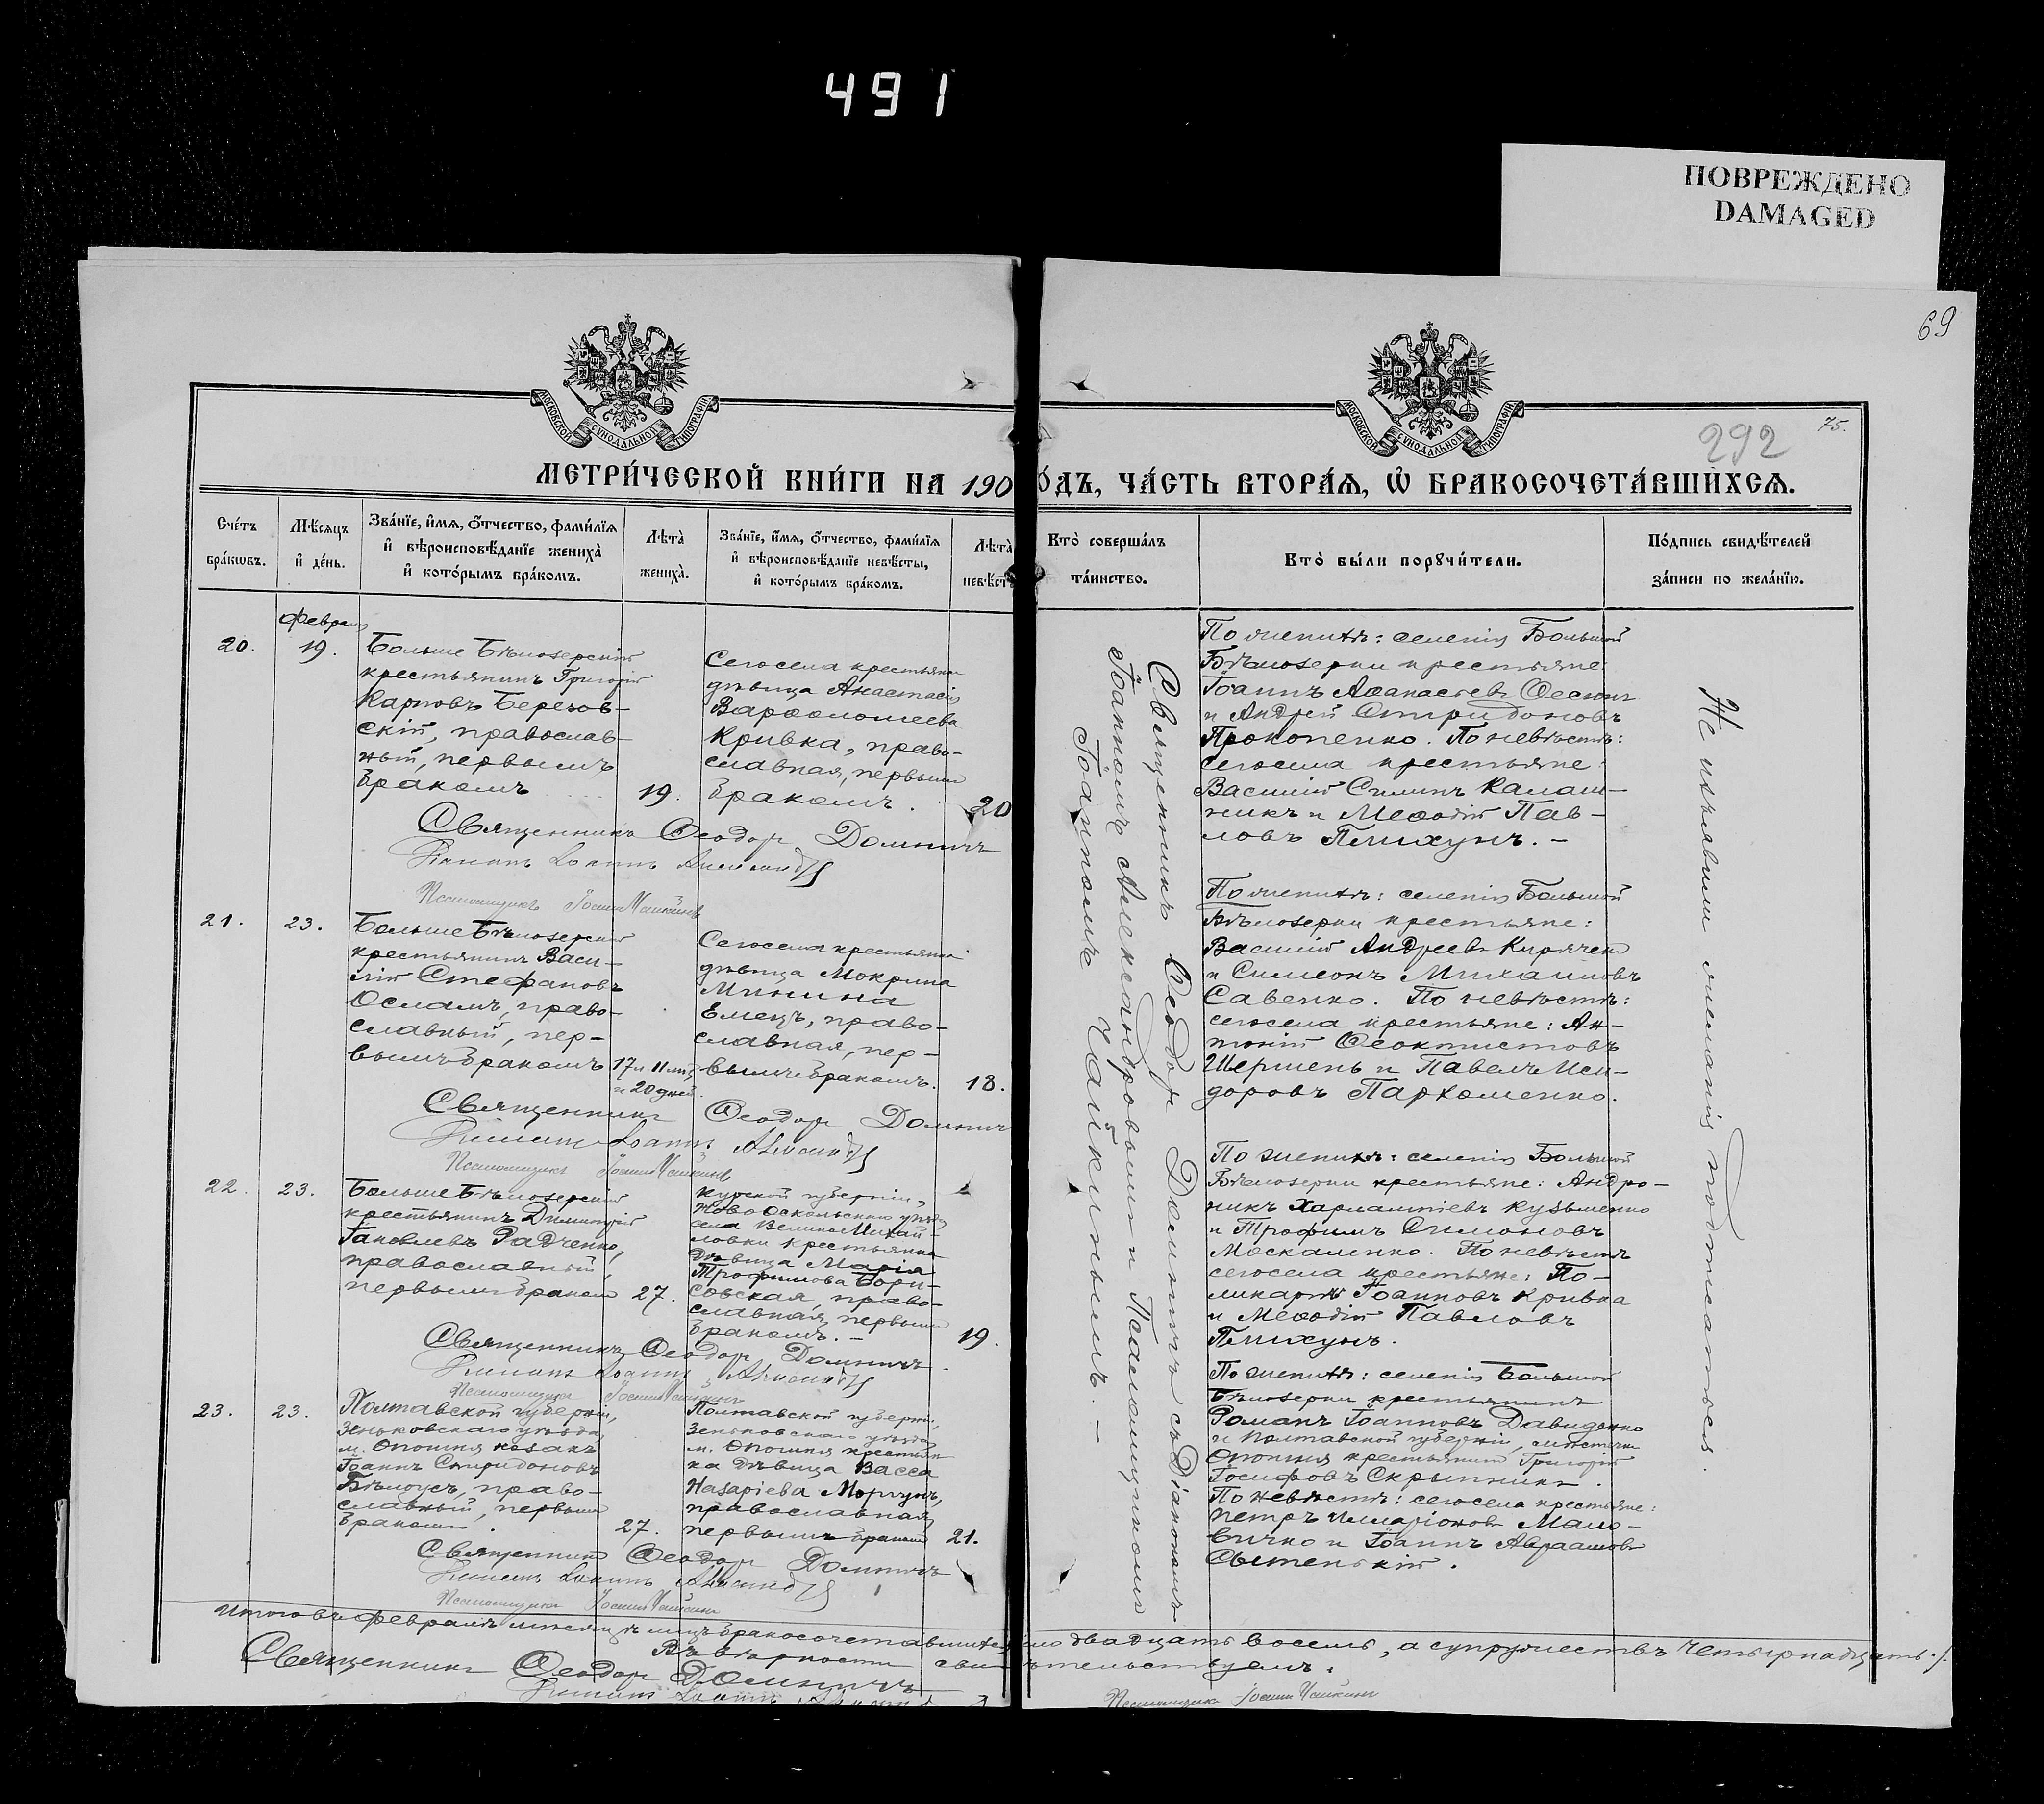 491
ПОВРЕЖДЕНО
DAMAGED
69
МОСКОВСКОЙ СѴНОДАЛЬНОЙ ТИПОГРАФІИ
МОСКОВСКОЙ СѴНОДАЛЬНОЙ ТИПОГРАФІИ
292
75.
МЕТРИ́ЧЕСКОЙ КНИ́ГИ НА 190 о́дъ, ЧА́СТЬ ВТОРА́Я, Ѽ БРАКОСОЧЕТА́ВШИХСЯ.
Сче́тъ
бра́кωвъ.
Мѣ́сяцъ
и҆ де́нь.
Зва́нїе, и҆́мя, ѻ҆́тчество, фами́лїя
и҆ вѣроисповѣ́данїе жениха̀
и҆ кото́рымъ бра́комъ.
Лѣта̀
жениха̀.
Зва́нїе, и҆́мя, ѻ҆́тчество, фами́лїя
и҆ вѣроисповѣ́данїе невѣ́сты,
и҆ кото́рымъ бра́комъ.
Лѣта̀
невѣ́ст
Кто̀ соверша́лъ
та́инство.
Кто̀ бы́ли порꙋчи́тели.
По́дпись свидѣ́телей
за́писи по жела́нїю.
Февраля
20.
19.
Больше Бѣлозерскій
крестьянинъ Григорій
Карповъ Березов-
скій, православ-
ный, первымъ
бракомъ
19.
Сего села крестьянка
дѣвица Анастасія
Варѳоломеева
Кривка, право-
славная, первымъ
бракомъ.
20
Священникъ Ѳеодоръ Домничъ
Псаломщикъ Іоаннъ Чайкинъ
По женихѣ: селенія Большой
Бѣлозерки крестьяне:
Іоаннъ Аѳанасіевъ
и Андрей Спиридоновъ
Прокопенко. По невѣстѣ:
сего села крестьяне:
Василій Силинъ Калаш-
никъ и Меѳодій Пав-
ловъ Плихунъ. –
21.
23.
Больше Бѣлозерскій
крестьянинъ Васи-
лій Стефановъ
Осламъ, право-
славный, пер-
вымъ бракомъ
17 и 11 мѣс.
и 20 дней.
Сего села крестьянка
дѣвица Мокрина
Минина
Емецъ, право-
славная, пер-
вымъ бракомъ.
18.
Священникъ Ѳеодоръ Домничъ
Псаломщикъ Іоаннъ Чайкинъ
По женихѣ: селенія Большой
Бѣлозерки крестьяне:
Василій Андреевъ Киряченко
и Симеонъ Михаиловъ
Савенко. По невѣстѣ:
сего села крестьяне: Ан-
тоній Ѳеоктистовъ
Шершень и Павелъ Иси-
доровъ Пархоменко.
22.
23.
Больше Бѣлозерскій
крестьянинъ Димитрій
Іаковлевъ Радченко,
православный,
первымъ бракомъ
27.
Курской губерніи,
Новооскольскаго уѣзда
села Великомихай-
ловки крестьянка
дѣвица Марія
Трофимова Бори-
совская, право-
славная, первымъ
бракомъ. –
19.
Священникъ Ѳеодоръ Домничъ
Псаломщикъ Іоаннъ Чайкинъ
По женихѣ: селенія Большой
Бѣлозерки крестьяне: Андро-
никъ Харлампіевъ Кузьменко
и Трофимъ Симоновъ
Москаленко. По невѣстѣ
сего села крестьяне: По-
ликарпъ Іоанновъ Кривка
и Меѳодій Павловъ
Плихунъ.
23.
23.
Полтавской губерніи,
Зеньковскаго уѣзда
м. Опошня козакъ
Іоаннъ Спиридоновъ
Бѣлоусъ, право-
славный, первымъ
бракомъ.
27.
Полтавской губерніи,
Зеньковскаго уѣзда
м. Опошня крестьян
ка дѣвица Васса
Назаріева Моргунъ,
православная,
первымъ бракомъ
21.
Священникъ Ѳеодоръ Домничъ
Псаломщикъ Іоаннъ Чайкинъ
По женихѣ: селенія Большой
Бѣлозерки крестьянинъ
Романъ Іоанновъ Давиденко
и Полтавской губерніи, мѣстечка
Опошня крестьянинъ Григорій
Іосифовъ Скрыпникъ.
По невѣстѣ: сего села крестьяне:
Петръ Иларіоновъ Мало-
вичко и Іоаннъ Авраамовъ
Сытенькій.
Священникъ Ѳеодоръ Домничъ съ Діакономъ
Іоанномъ Александровымъ и Псаломщикомъ
Іоанномъ Чайкинымъ. –
Не изъявили желанія подписаться.
Итого въ февралѣ мѣсяцѣ лицъ бракосочетавшихся было двадцать восемь, а супружествъ четырнадцать./.
Въ вѣрности свидѣтельствуемъ.
Священникъ Ѳеодоръ Домничъ
Псаломщикъ Іоаннъ Чайкинъ